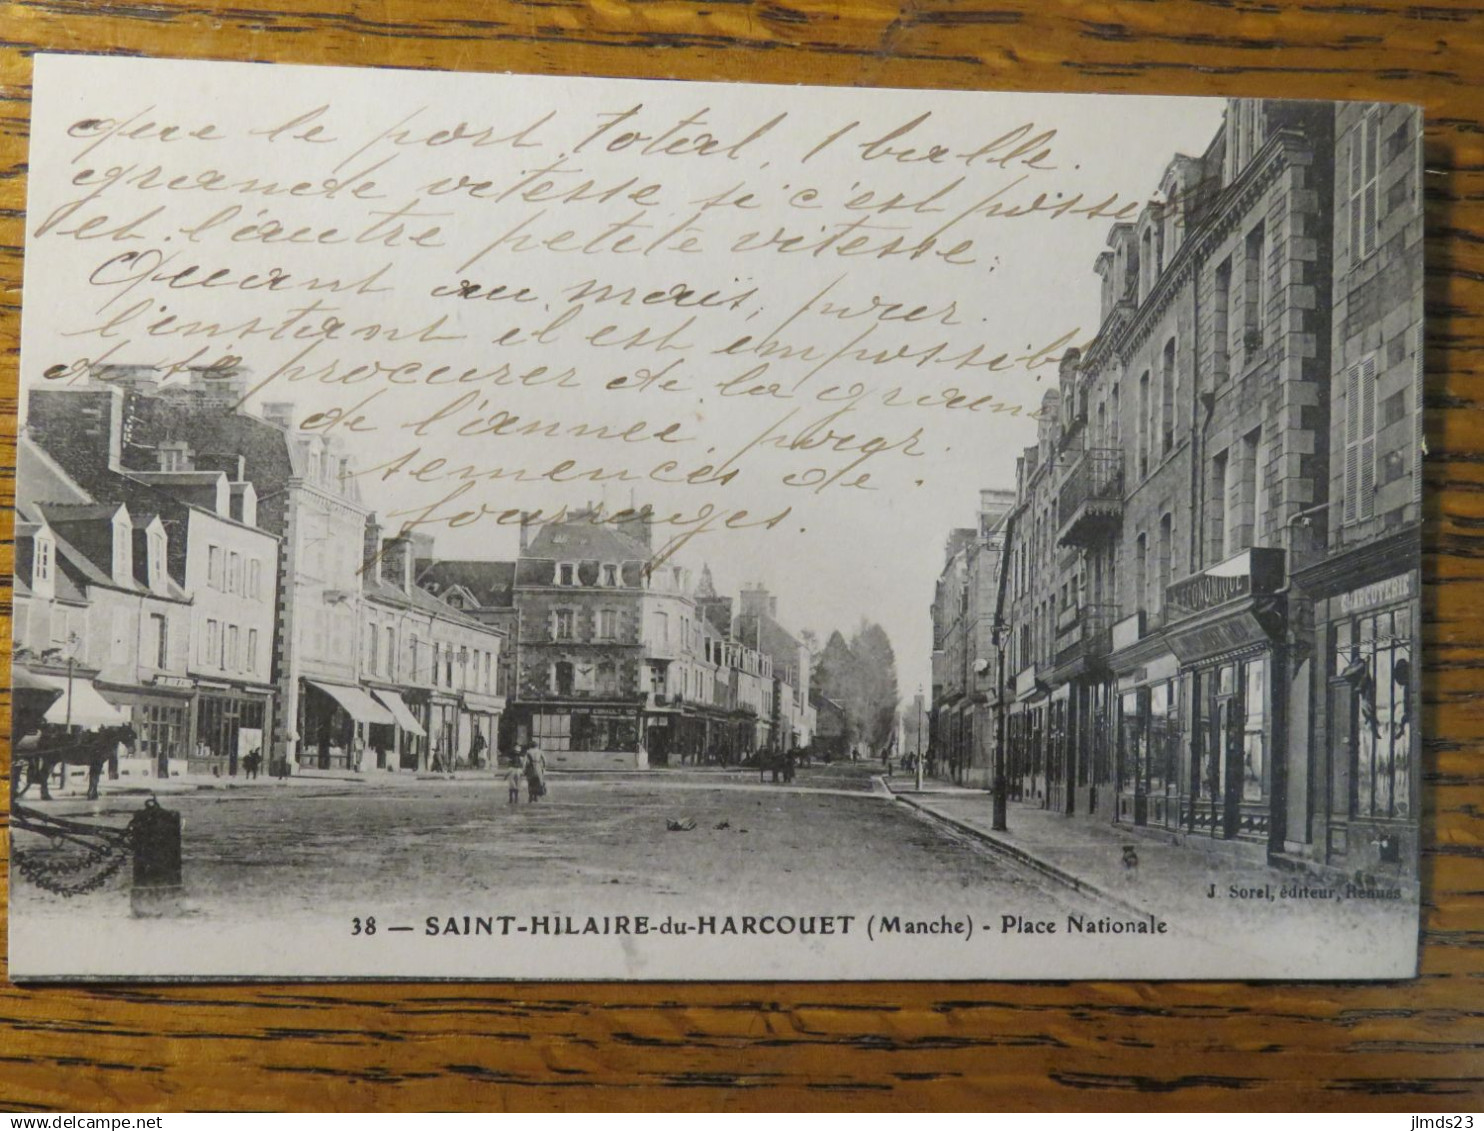 que le port total, 1 balle.
grande vitesse si c'est possib
et l'autre petite vitesse.
Quant au maïs, pour.
l'instant il est impossib
de se procurer de la graine
de l'année, pour.
semences de.
fourrages.
ECONOMIQUE
CHARCUTERIE
J. Sorel, éditeur, Rennes
38 — SAINT-HILAIRE-du-HARCOUET (Manche) - Place Nationale
jlmds23